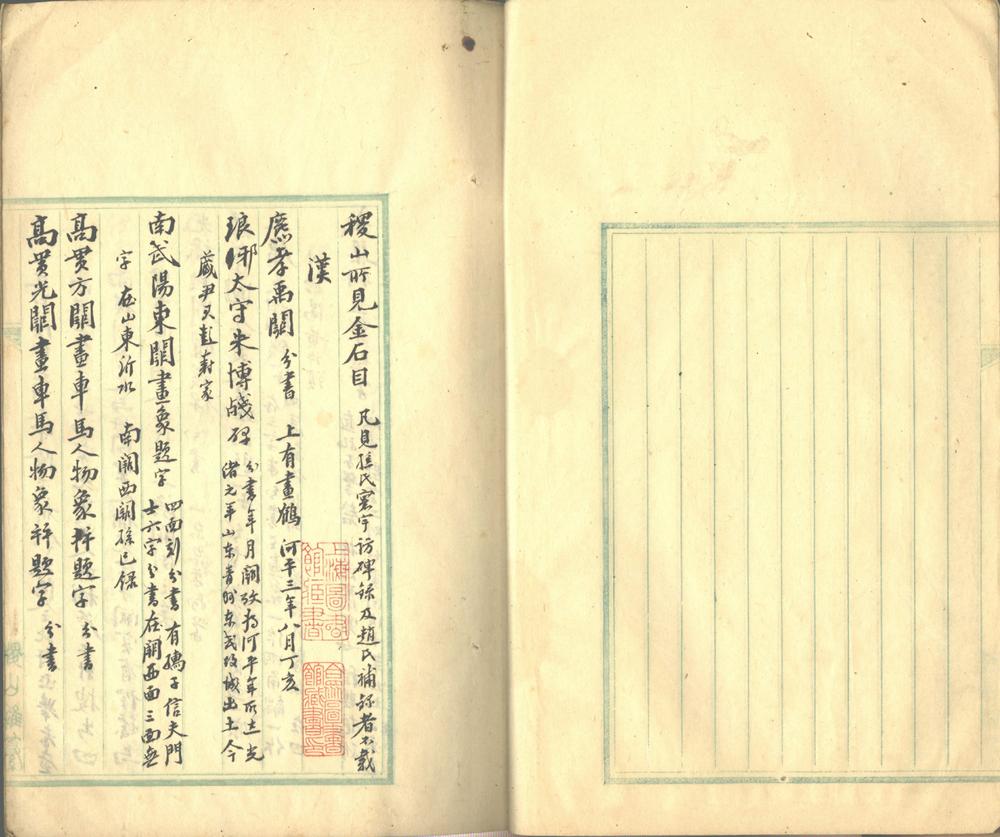 稷山所見金石目 凡見孫氏寰宇訪碑錄及趙氏補錄者不載
漢
麃孝禹闕 分書 上有畫鶴 河平三年八月丁亥
琅邪太守朱博殘碑 分書年月闕攷為河平年所立光
緒元年山東青州東武故城出土今
藏尹天彭壽家
南武陽東闕畫象題字 四面刻分書有孺子信夫門
士六字分書在闕西面三面無
字 在山東沂水 南闕西闕孫已錄
高貫方闕畫車馬人物象并題字 分書
高貫光闕畫車馬人物象并題字 分書
上海圖書館